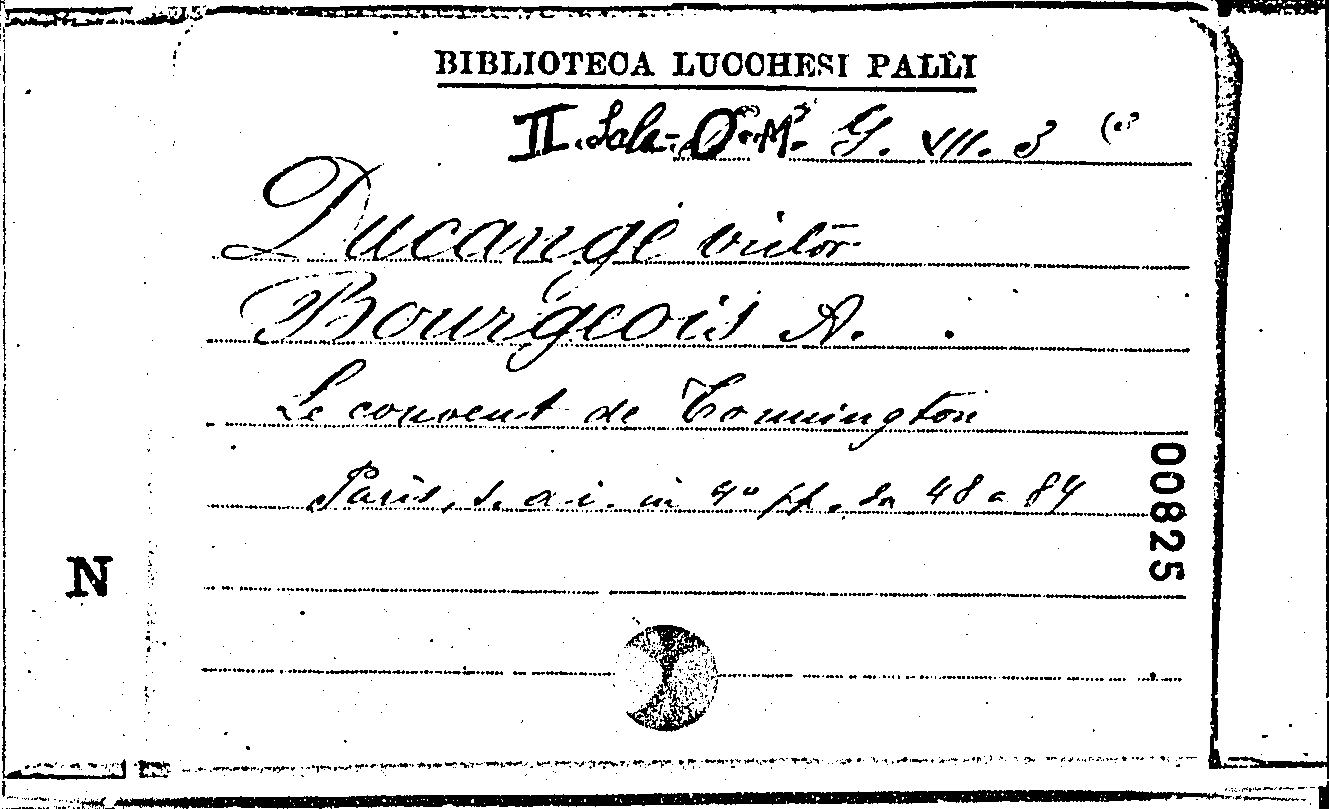 BIBLIOTECA LUCCHESI PALLI
II. Sala. O. M. G. VII. 3 (3
Ducange Victor
Bourgeois A.
Le couvent de Tonnington
Paris, s. a. i. in 4° pp. da 48 a 84
00825
N